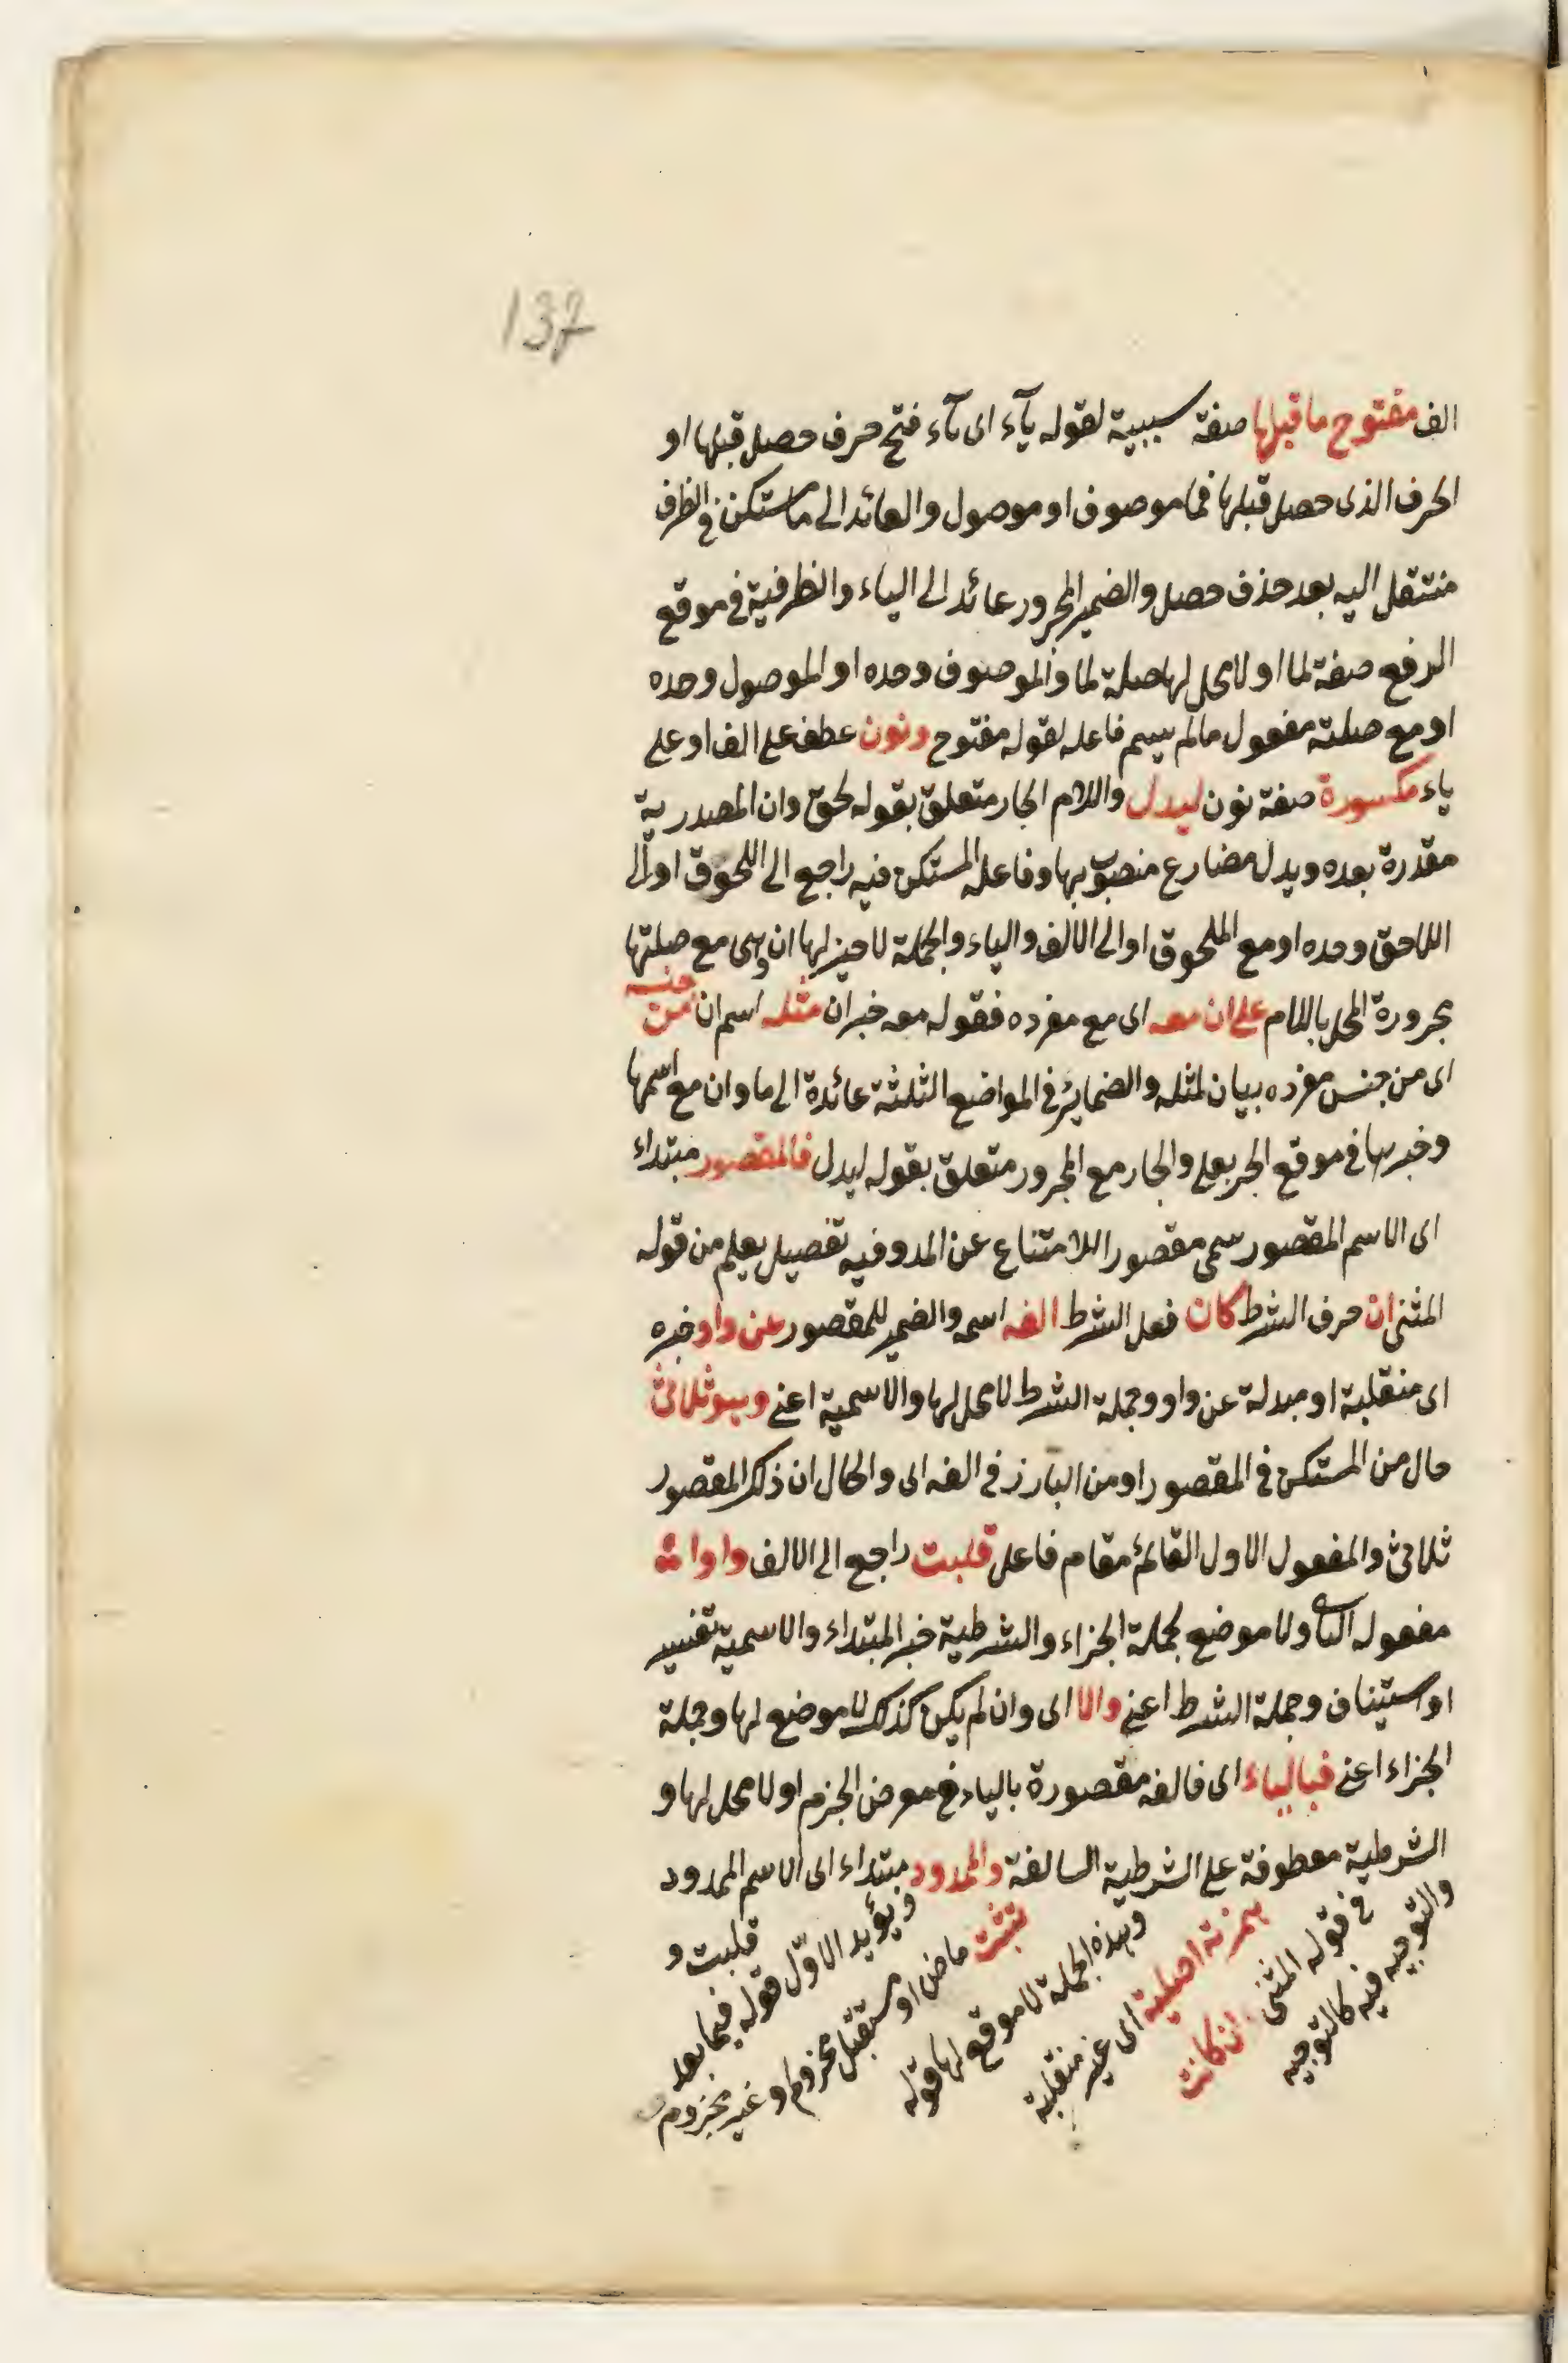 137
الف مفتوح ما قبلها صفة سببية لقوله يآء اى يآء فتح حرف حصل قبلها او
الحرف الذى حصل قبلها فما موصوف او موصول والعائد الى ما مستكن فى الظرف
منتقل اليه بعد حذف حصل والضمير المجرور عائد الى الياء والظرفية فى موقع
الرفع صفة لما او لا محل لها صلة لما والموصوف وحده او الموصول وحده
او مع صلته مفعول مالم يسم فاعله لقوله مفتوح ونون عطف على الف او على
ياء مكسورة صفة نون ليدل واللام الجار متعلق بقوله لحق وان المصدرية
مقدرة بعده ويدل مضارع منصوب بها وفاعله المستكن فيه راجع الى اللحوق او الى
اللاحق وحده او مع الملحوق او الى الالف والياء والجملة لا حيز لها ان وهى مع صلتها
مجرورة المحل باللام على ان معه اى مع مفرده فقوله معه خبر ان مثله اسم ان من جنسه
اى من جنس مفرده بيان لمثله والضمائر فى المواضع الثلثة عائدة الى ما وان مع اسمها
وخبرها فى موقع الجر بعلى والجار مع المجرور متعلق بقوله ليدل فالمقصور مبتداء
اى الاسم المقصور سمى مقصورا للامتناع عن المد وفيه تفصيل يعلم من قوله
المثنى ان حرف الشرط كان فعل الشرط الفه اسمه والضمير للمقصور عن واو خبره
اى منقلبة او مبدلة عن واو وجملة الشرط لا محل لها والاسمية اعنى وهو ثلاثى
حال من المستكن فى المقصور او من البارز فى الفه اى والحال ان ذلك المقصور
ثلاثى والمفعول الاول القائم مقام فاعل قلبت راجع الى الالف واوا
مفعوله الثانى ولا موضع لجملة الجزاء والشرطية خبر المبتداء والاسمية تفسير
او استيناف وجملة الشرط اعنى والا اى وان لم يكن كذلك لا موضع لها وجملة
الجزاء اعنى فبالياء اى فالفه مقصورة بالياء فى معرض الجزم او لا محل لها و
الشرطية معطوفة على الشرطية السالفة والممدود مبتداء اى الاسم الممدود
والتوجيه فيه كالتوجيه
فى قوله المثنى ان كانت
همزته اصلية اى غير منقلبة
وهذه الجملة لا موقع لها قوله
تثبت ماض او مستقبل مجزوم او غير مجزوم
ويؤيد الاول قوله فيما بعد
قلبت و